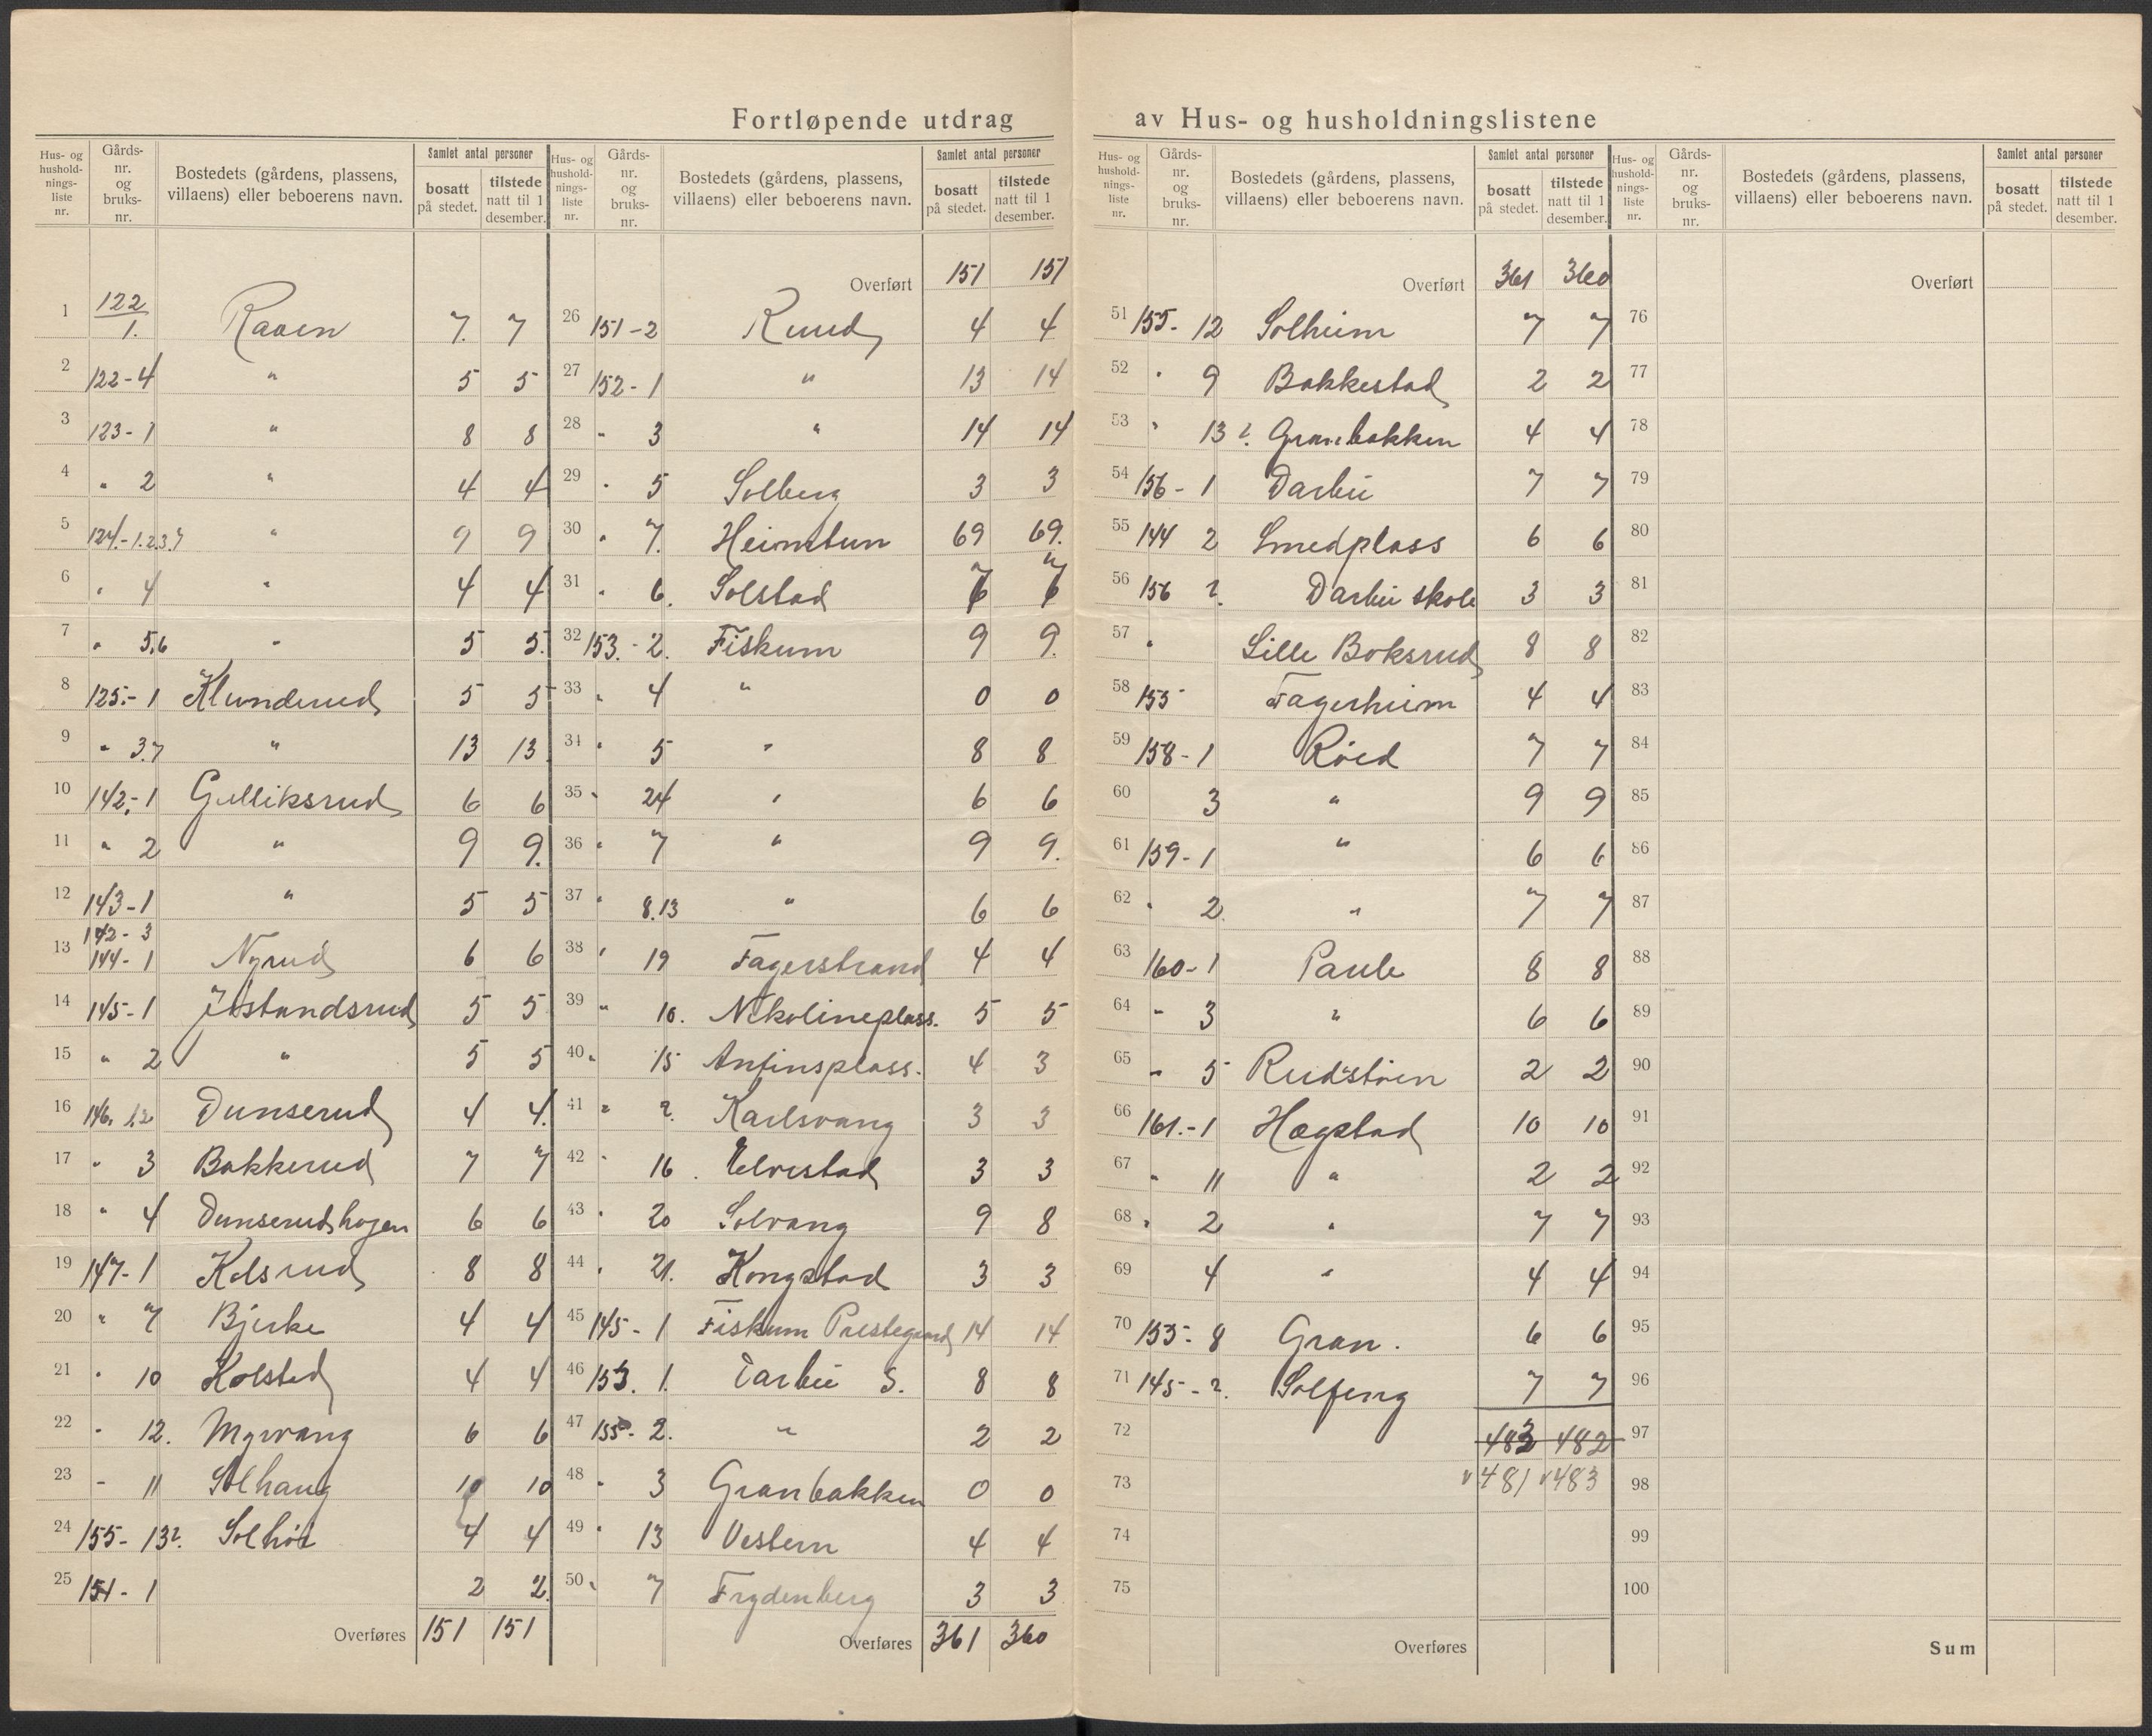 Fortløpende utdrag av Hus- og husholdningslistene
Hus- og hushold- nings- liste nr.
Gårds- nr. og bruks- nr.
Bostedets (gårdens, plassens, villaens) eller beboerens navn.
Samlet antal personer
bosatt på stedet.
tilstede natt til 1 desember.
1 122/1. Raaen 7. 7
2 122-4 " 5 5
3 123-1 " 8 8
4 " 2 " 4 4
5 124-1.2.3.7 " 9 9
6 " 4 " 4 4
7 " 5.6 " 5 5.
8 125.-1 Klunderud 5 5
9 " 3.7 " 13 13
10 142.-1 Gulliksrud 6 6
11 " 2 " 9 9.
12 143-1 " 5 5
13 142-3 144-1 Nyrud 6 6
14 145-1 Jøstandsrud 5 5
15 " 2 " 5 5
16 146. 1.2 Dunserud 4 4.
17 " 3 Bakkerud 7 7
18 " 4 Dunserudshagen 6 6
19 147-1 Kolsrud 8 8
20 " 7 Bjerke 4 4
21 " 10 Kolstad 4 4
22 " 12. Myrvang 6 6
23 - 11 Solhaug 10 10
24 155- 13?. Solhøi 4 4
25 151-1 2 2.
Overføres 151 151
Hus- og hushold- nings- liste nr.
Gårds- nr. og bruks- nr.
Bostedets (gårdens, plassens, villaens) eller beboerens navn.
Samlet antal personer
bosatt på stedet.
tilstede natt til 1 desember.
Overført 151 151
26 151-2 Ruud 4 4
27 152-1 " 13 14
28 " 3 " 14 14
29 " 5 Solberg 3 3
30 " 7. Heimtun 69 69.
31 " 6. Solstad 7 7
32 153.-2. Fiskum 9 9.
33 " 4 " 0 0
34 " 5 " 8 8
35 " 24 " 6 6
36 " 7 " 9 9.
37 " 8.13 " 6 6
38 " 19 Fagerstrand 4 4
39 " 10. Nikolineplass. 5 5
40 " 15 Anfinsplass. 4 3
41 " ?. Karlsvang 3 3
42 " 16. Elvestad 3 3
43 " 20 Solvang 9 8
44 " 21. Kongstad 3 3
45 145-1 Fiskum Prestegaard 14 14
46 153. 1. Darbu S. 8 8
47 155-2. " 2 2
48 " 3 Granbakken 0 0
49 " 13 Vestern 4 4
50 " 7 Frydenberg 3 3
Overføres 361 360
Hus- og hushold- nings- liste nr.
Gårds- nr. og bruks- nr.
Bostedets (gårdens, plassens, villaens) eller beboerens navn.
Samlet antal personer
bosatt på stedet.
tilstede natt til 1 desember.
Overført 361 360
51 155- 12 Solheim 7 7
52 " 9 Bakkestad 2 2
53 " 13 ?. Granbakken 4 4
54 156-1 Darbu 7 7
55 144 2 Smedplass 6 6
56 156 ?. Darbu skole 3 3
57 " Lille Boksrud 8 8
58 155 Fagerheim 4 4
59 158-1 Røed 7 7
60 3 " 9 9
61 159-1 " 6 6
62 " 2. " 7 7
63 160-1 Paule 8 8
64 " 3 " 6 6
65 " 5 Rudstøen 2 2
66 161.-1 Hægstad 10 10
67 " 11 " 2 2
68 " 2 " 7 7
69 4 " 4 4
70 155- 8 Gran. 6 6
71 145-?. Solfeng 7 7
72 483 482
73 481 483
74
75
Overføres
Hus- og hushold- nings- liste nr.
Gårds- nr. og bruks- nr.
Bostedets (gårdens, plassens, villaens) eller beboerens navn.
Samlet antal personer
bosatt på stedet.
tilstede natt til 1 desember.
Overført
76
77
78
79
80
81
82
83
84
85
86
87
88
89
90
91
92
93
94
95
96
97
98
99
100
Sum